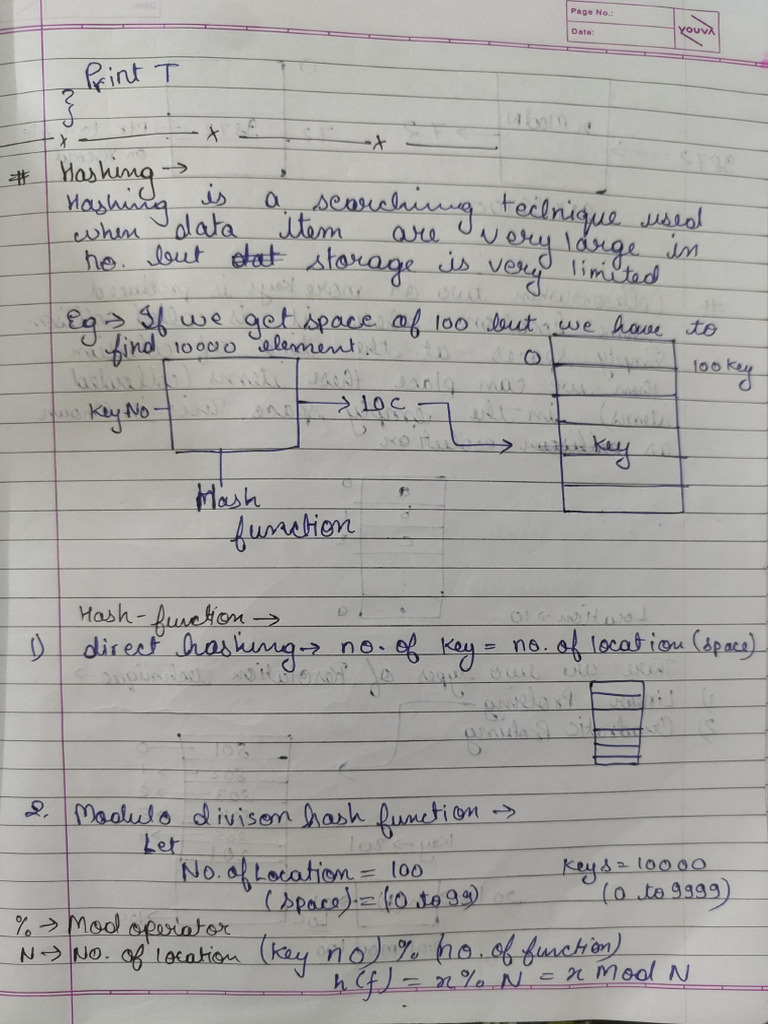 Page No.:
Date:
YOUVA
Print T
}
x x x
# Hashing →
Hashing is a searching tecnique used
when data item are very large in
no. but dat storage is very limited
Eg → If we get space of 100 but we have to
find 10000 element.
0
100 key
Key No
→ LOC
Key
Hash
function
Hash-function →
1) direct hashing → no. of key = no. of location (space)
2. Modulo divison hash function →
Let
No. of Location = 100 Keys = 10000
(space) = (0 to 99) (0 to 9999)
% → Mod operator
N → No. of location (key no) % (no. of function)
h(f) = x % N = x Mod N